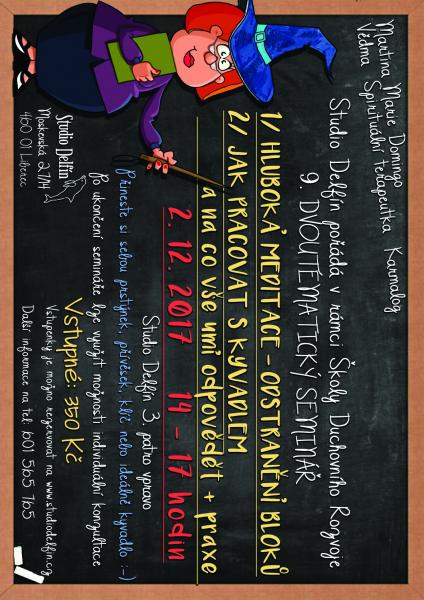 Martina Marie Domingo
Vědma Spirituální terapeutka Karmalog
Studio Delfín pořádá v rámci Školy Duchovního Rozvoje
9. DVOUTÉMATICKÝ SEMINÁŘ
1/ HLUBOKÁ MEDITACE - ODSTRANĚNÍ BLOKŮ
2/ JAK PRACOVAT S KYVADLEM
a na co vše umí odpovědět + praxe
2. 12. 2017 14 - 17 hodin
Studio Delfín 3. patro vpravo
Přineste si sebou prstýnek, přívěsek, klíč nebo ideálně kyvadlo :-)
Po ukončení semináře lze využít možnosti individuální konzultace
Vstupné: 350 Kč
Vstupenky je možno rezervovat na www.studiodelfin.cz
Další informace na tel. 601 565 765
Studio Delfín
Moskevská 27/14
460 01 Liberec